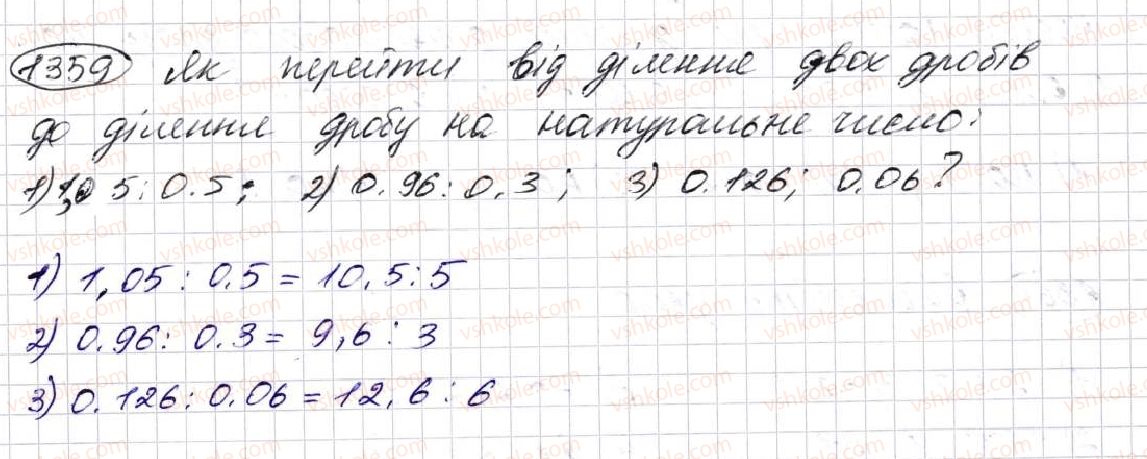 1359 Як перейти від ділення двох дробів
до ділення дробу на натуральне число:
1) 1,05 : 0.5 ; 2) 0.96 : 0.3 ; 3) 0.126 ; 0.06 ?
1) 1,05 : 0.5 = 10,5 : 5
2) 0.96 : 0.3 = 9,6 : 3
3) 0.126 : 0.06 = 12,6 : 6